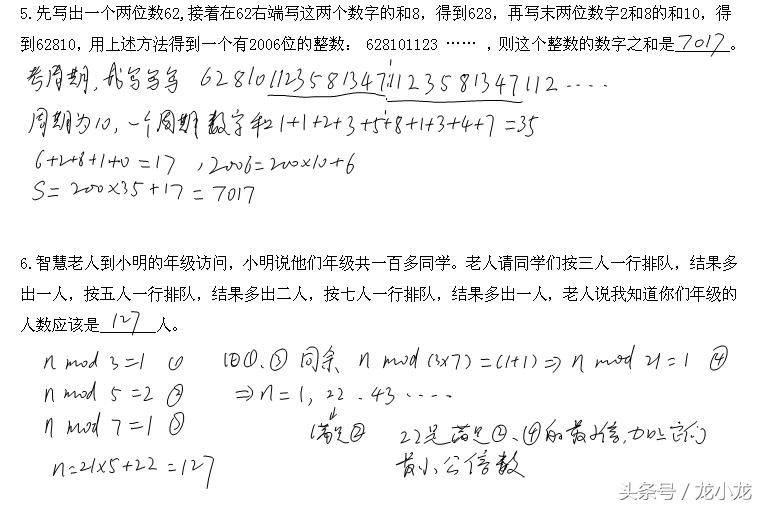 5.先写出一个两位数62,接着在62右端写这两个数字的和8，得到628，再写末两位数字2和8的和10，得
到62810，用上述方法得到一个有2006位的整数： 628101123 …… ，则这个整数的数字之和是 7017 。
考周期，我写写写 628101123581347112358134711​2....
周期为10，一个周期数字和21+1+2+3+5+8+1+3+4+7=35
6+2+8+1+0=17 , 2006=200×10+6
S=200×35+17=7017
6.智慧老人到小明的年级访问，小明说他们年级共一百多同学。老人请同学们按三人一行排队，结果多
出一人，按五人一行排队，结果多出二人，按七人一行排队，结果多出一人，老人说我知道你们年级的
人数应该是 127 人。
n mod 3=1 ① 由①、③ 同余 n mod (3×7)=(1+1)⇒ n mod 21=1 ④
n mod 5=2 ② ⇒n=1, 22 . 43 ....
n mod 7=1 ③ 满足② 22是满足②、④的最小值,加上它们
n=21×5+22=127 最小公倍数
头条号 / 龙小龙